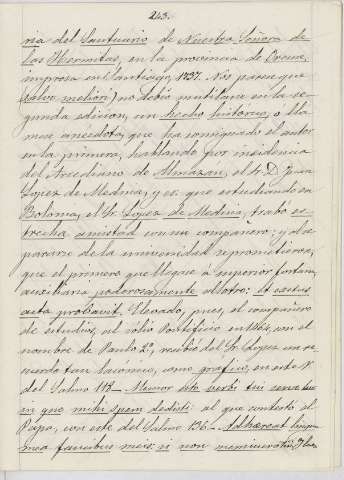 243.
ria del Santuario de Nuestra Señora de
las Hermitas, en la provincia de Orense,
impresa en Santiago, 1737. Nos parece que
(salvo meliori) no debió mutilarse en la se-
gunda edicion, un hecho histórico, o lla-
mese anecdota, que ha consignado el autor
en la primera, hablando por incidencia
del Arcediano de Almazan, el Sr. D. Juan
Lopez de Medina, y es: que estudiando en
Bolonia, el Sr. Lopez de Medina, trabó es-
trecha amistad con un compañero; y al se-
pararse de la universidad se prometieron,
que el primero que llegue a superior fortuna,
auxiliaria poderosamente al otro: et exitus
acta probavit. Elevado, pues, el compañero
de estudios, al solio Pontificio en 1464, con el
nombre de Paulo 2º, recibió del Sr. Lopez un re-
cuerdo tan laconico, como grafico, en este V.
del Salmo 118. Memor esto verbi tui servo tuo
in quo mihi spem dedisti: al que contestó el
Papa, con este del Salmo 136. Adhaereat lingua
mea faucibus meis: si non meminero tui.